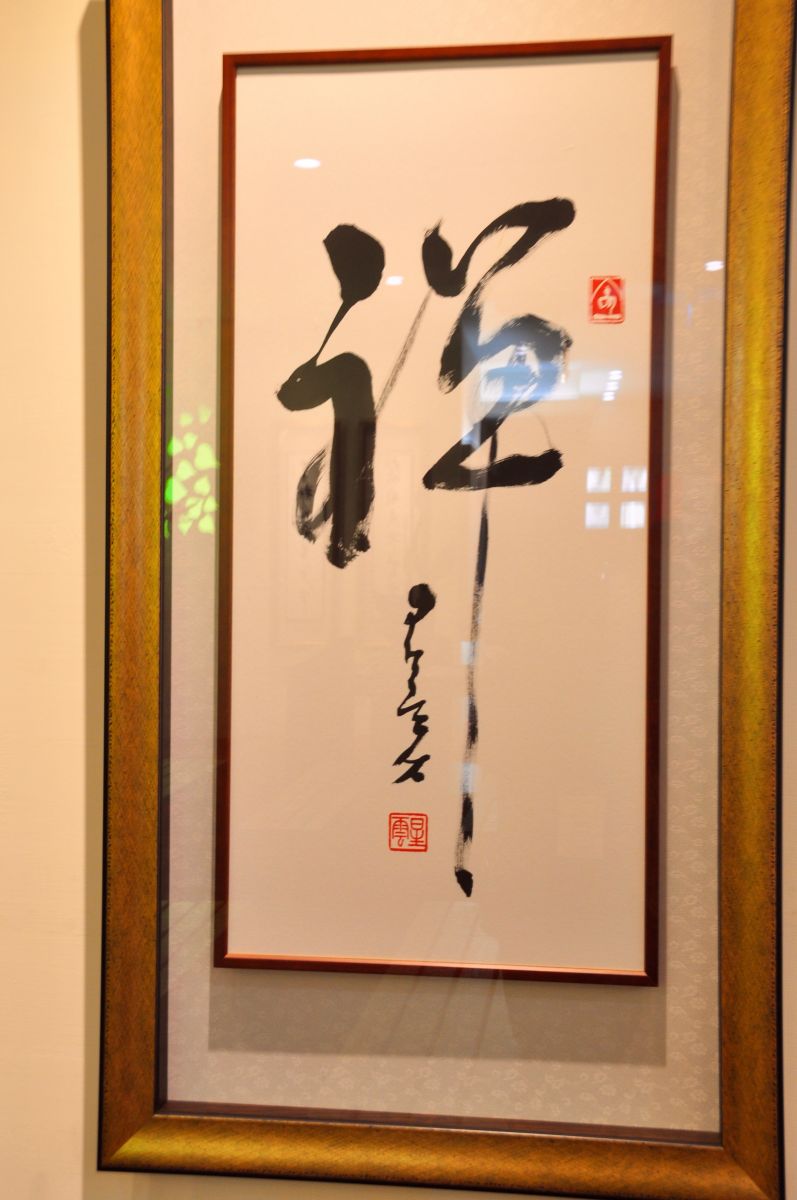 禪
星雲
星雲